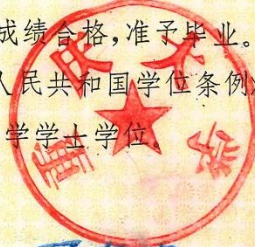 成绩合格,准予毕业。
人民共和国学位条例
学学士学位。
大学